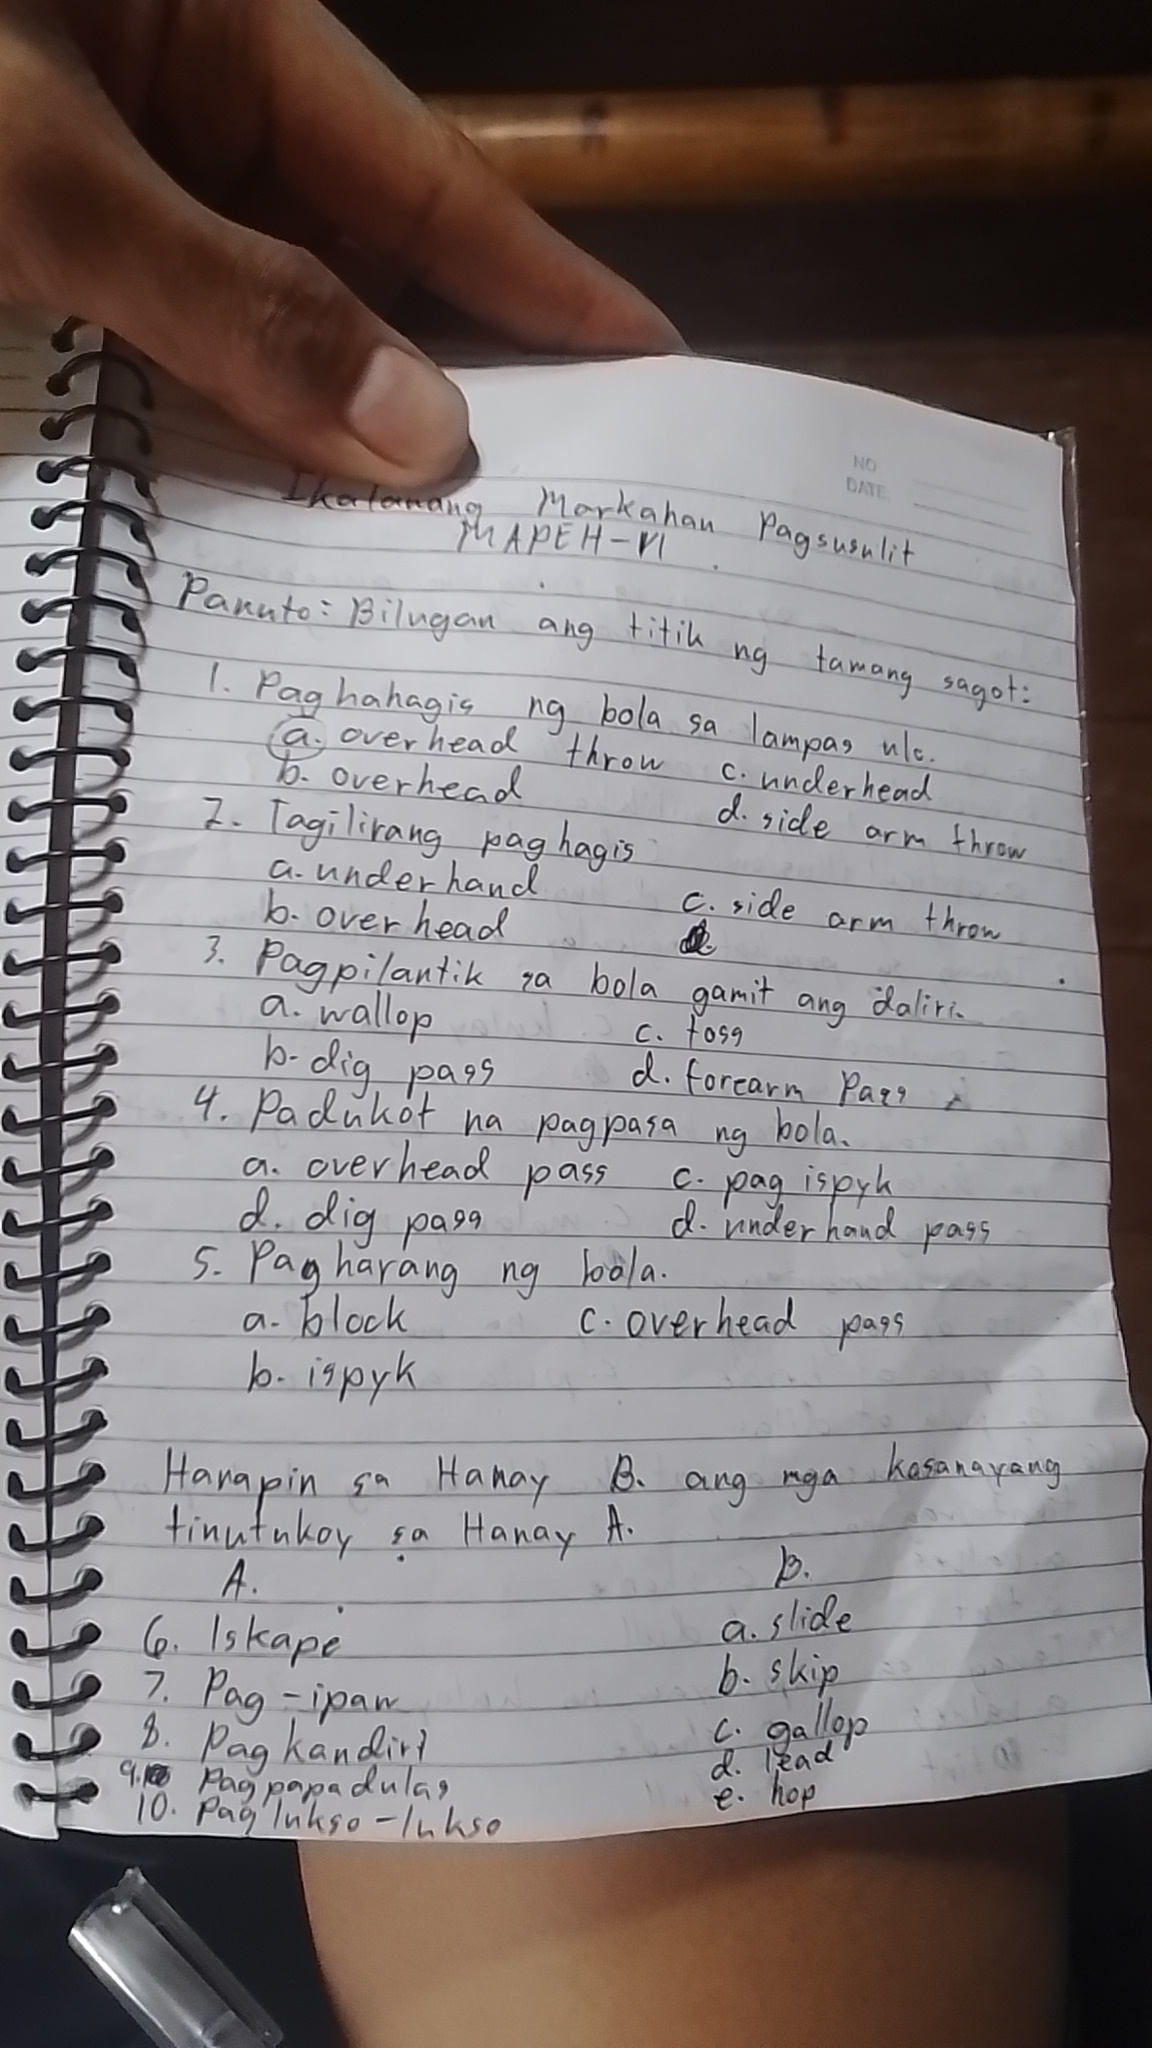 NO
DATE
Ikalawang Markahan Pagsusulit
MAPEH-VI
Panuto: Bilugan ang titik ng tamang sagot:
1. Paghahagis ng bola sa lampas ulo.
a. overhead throw c. underhead
b. overhead d. side arm throw
2. Tagilirang paghagis
a. underhand c. side arm throw
b. overhead
3. Pagpilantik sa bola gamit ang daliri.
a. wallop c. toss
b. dig pass d. forearm Pass
4. Padukot na pagpasa ng bola.
a. overhead pass c. pag ispyk
d. dig pass d. underhand pass
5. Pagharang ng bola.
a. block c. overhead pass
b. ispyk
Hanapin sa Hanay B. ang mga kasanayang
tinutukoy sa Hanay A.
A. B.
6. Iskape a. slide
7. Pag-ipaw b. skip
8. Pagkandirit c. gallop
9. Pagpapadulas d. lead
10. Paglukso-lukso e. hop